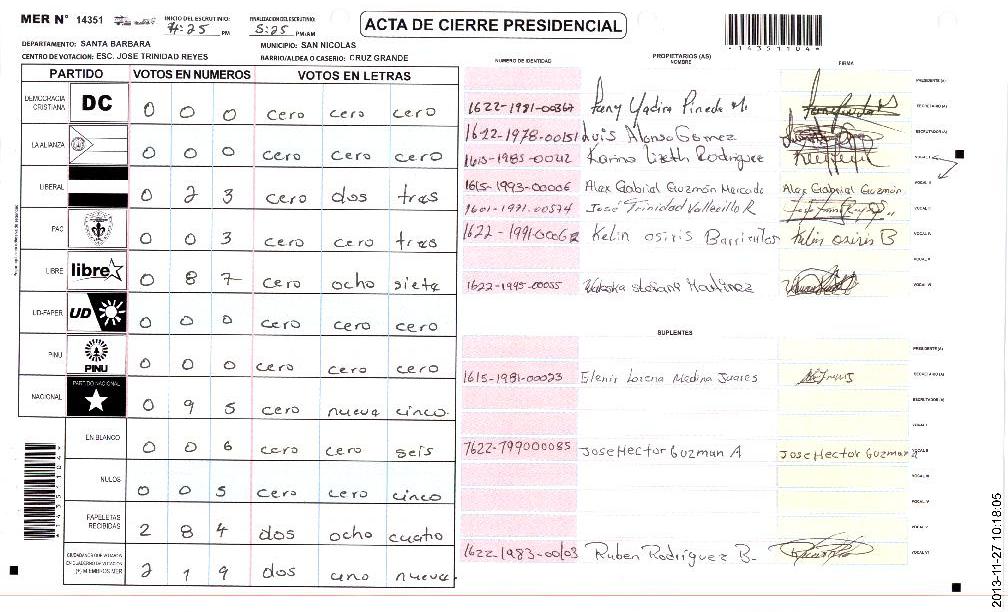 MER N° 14351 INICIO DEL ESCRUTINIO: 4:25 PM FINALIZACION DEL ESCRUTINIO: 5:25 PM/AM
ACTA DE CIERRE PRESIDENCIAL
DEPARTAMENTO: SANTA BARBARA MUNICIPIO: SAN NICOLAS
CENTRO DE VOTACION: ESC. JOSE TRINIDAD REYES BARRIO/ALDEA O CASERIO: CRUZ GRANDE
PARTIDO VOTOS EN NUMEROS VOTOS EN LETRAS
DEMOCRACIA CRISTIANA DC 0 0 0 cero cero cero
LA ALIANZA 0 0 0 cero cero cero
LIBERAL 0 2 3 cero dos tres
PAC 0 0 3 cero cero tres
LIBRE libre 0 8 7 cero ocho siete
UD-FAPER UD 0 0 0 cero cero cero
PINU PINU 0 0 0 cero cero cero
NACIONAL PARTIDO NACIONAL 0 9 5 cero nueve cinco
EN BLANCO 0 0 6 cero cero seis
NULOS 0 0 5 cero cero cinco
PAPELETAS RECIBIDAS 2 8 4 dos ocho cuatro
CIUDADANOS QUE VOTARON EN CUADERNO DE VOTACION (+) MIEMBROS MER 2 1 9 dos uno nueve
NUMERO DE IDENTIDAD PROPIETARIOS (AS) NOMBRE FIRMA
PRESIDENTE (A)
1622-1981-00367 Fany Yadira Pineda M. SECRETARIO (A)
1622-1978-00151 Luis Alonso Gomez ESCRUTADOR (A)
1615-1985-00212 Karina Lizeth Rodriguez VOCAL I
1615-1993-00006 Alex Gabriel Guzmán Mercado Alex Gabriel Guzmán VOCAL II
1601-1971-00574 José Trinidad Vallecillo R VOCAL III
1622-1991-00062 Kelin osiris Barrientos Kelin osiris B VOCAL IV
VOCAL V
1622-1995-00055 Martinez VOCAL VI
SUPLENTES
PRESIDENTE (A)
1615-1981-00023 Elenir Lorena Medina Juares SECRETARIO (A)
ESCRUTADOR (A)
VOCAL I
7622-799000085 Jose Hector Guzman A Jose Hector Guzman A VOCAL II
VOCAL III
VOCAL IV
VOCAL V
1622-1983-00103 Ruben Rodríguez B. VOCAL VI
2013-11-27 10:18:05